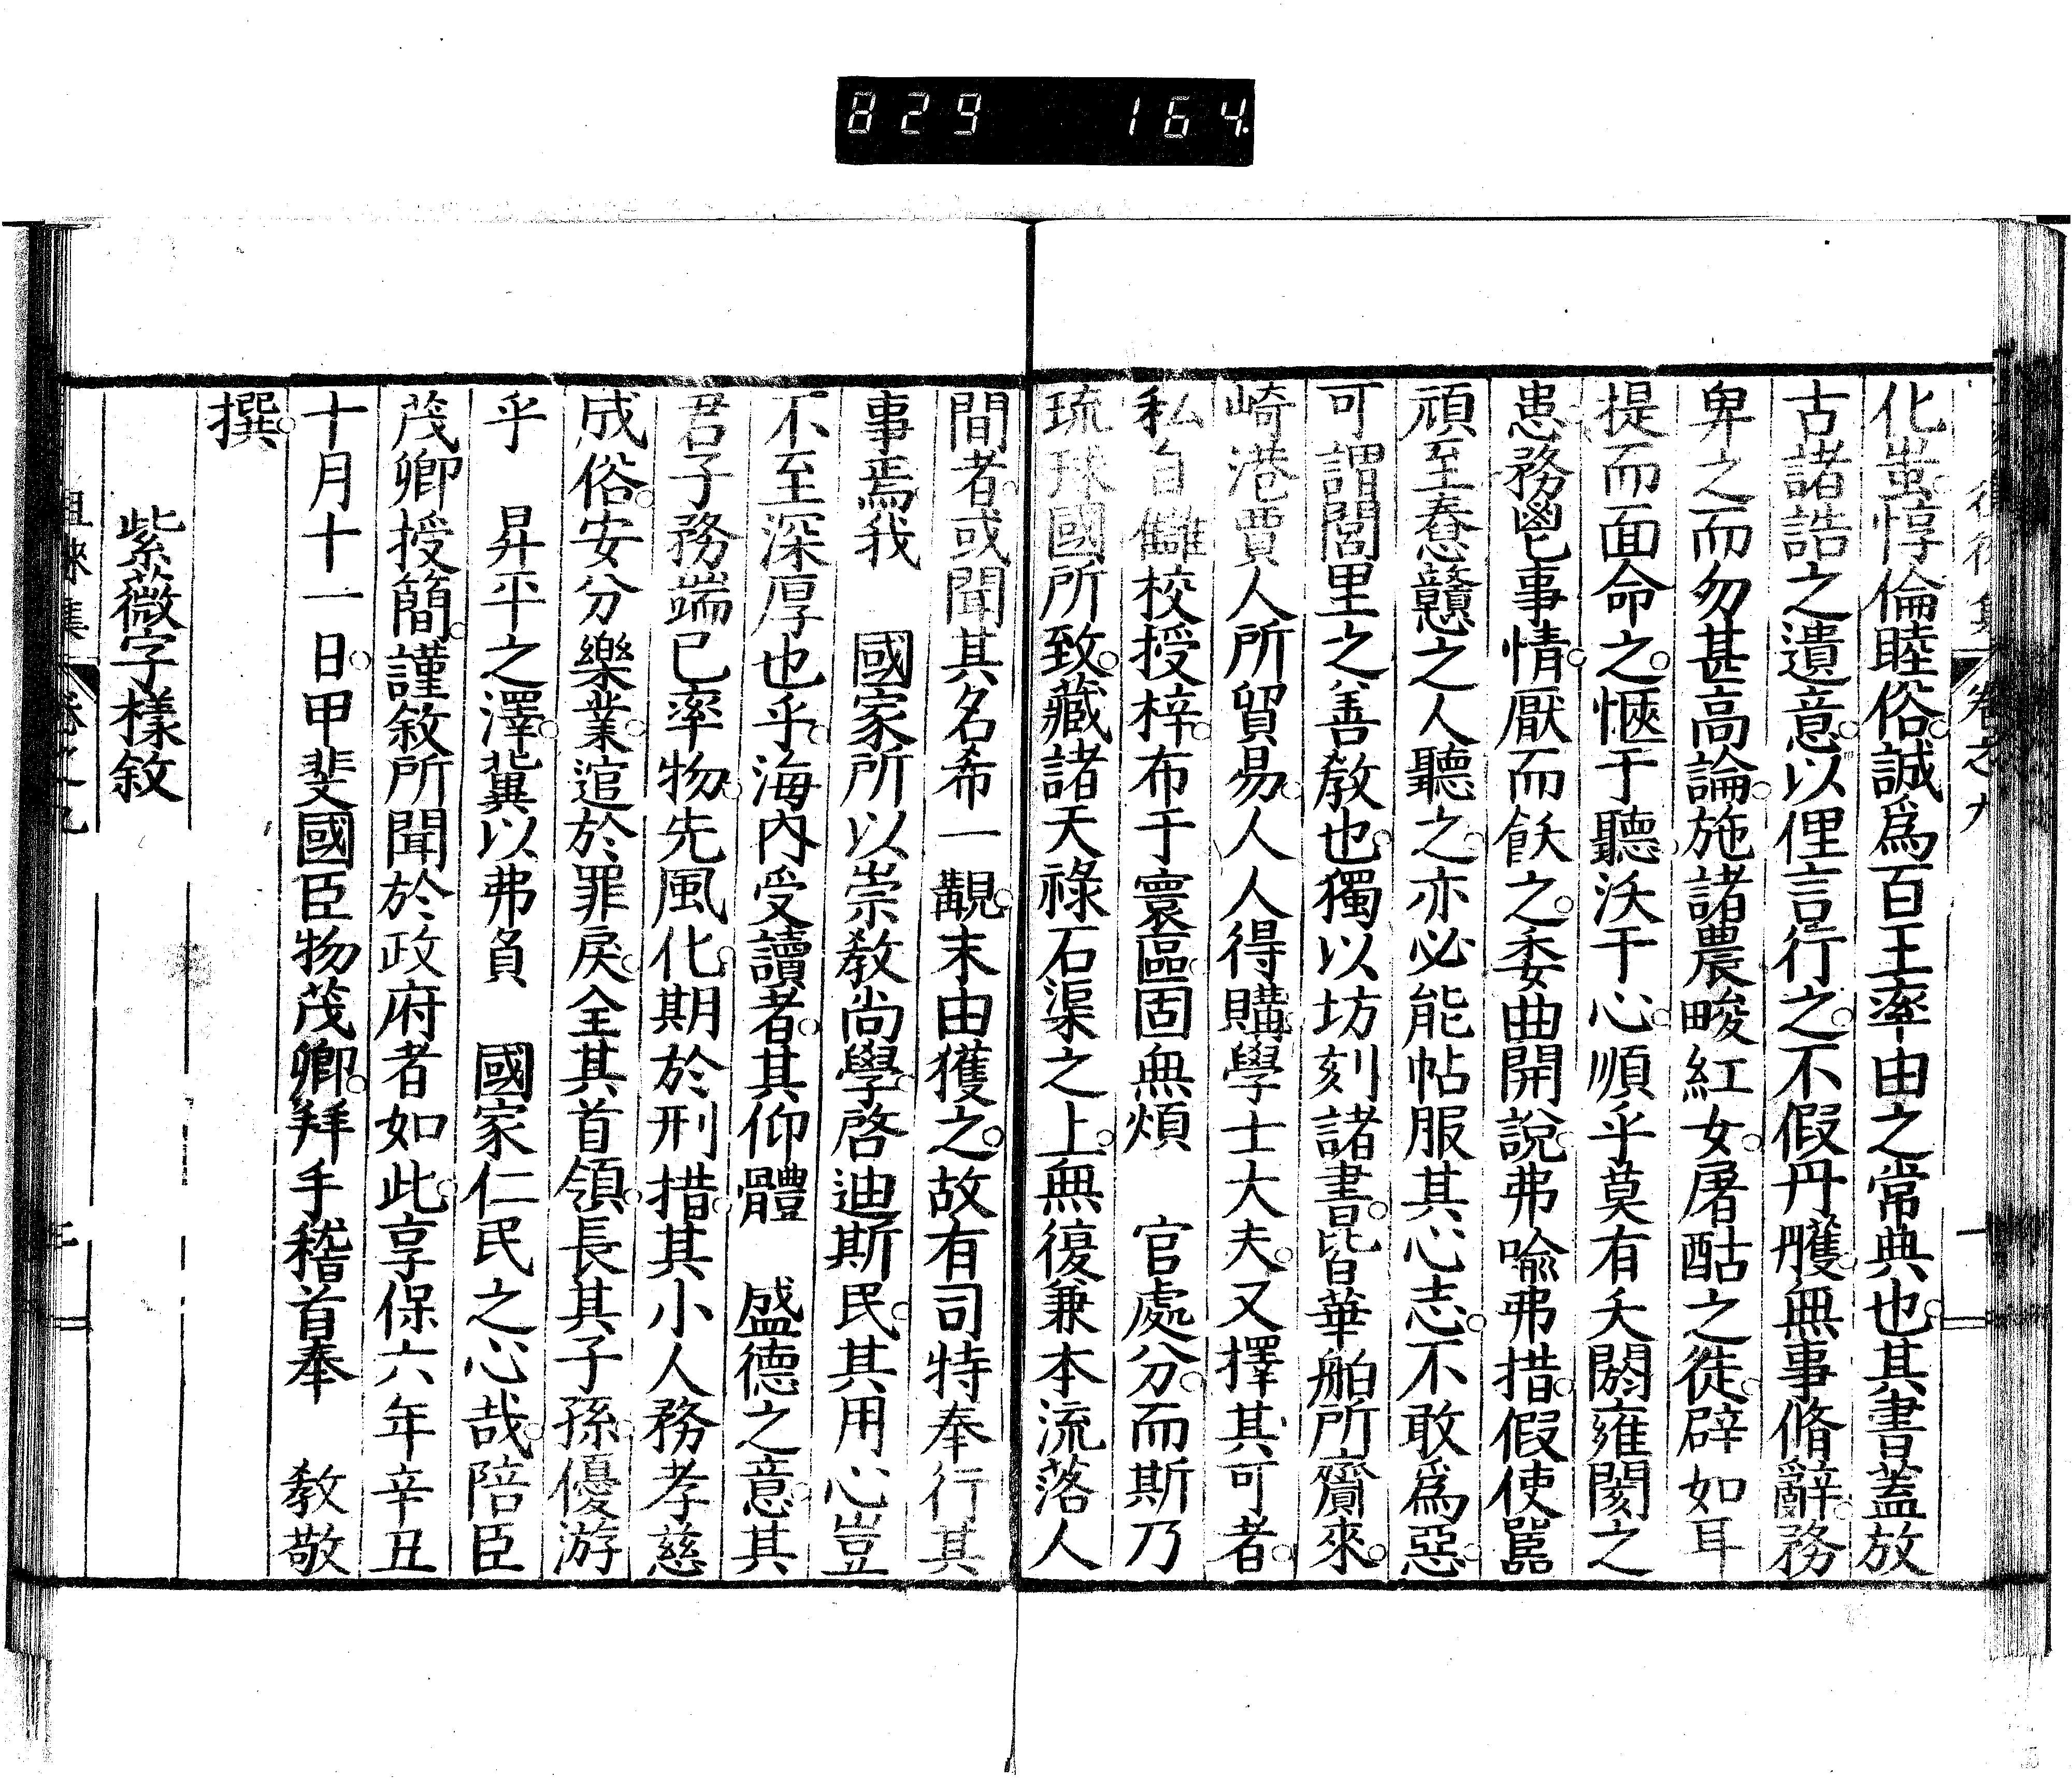 829 164
化蚩惇倫睦俗誠爲百王率由之常典也其書蓋放
古諸誥之遺意以俚言行之不假丹雘無事脩辭務
卑之而勿甚高論施諸農畯紅女屠酤之徒辟如耳
提而面命之愜于聽沃于心順乎莫有夭閼雍閡之
患務鬯事情厭而飫之委曲開說弗喩弗措假使嚚
頑至惷戇之人聽之亦必能帖服其心志不敢爲惡
可謂閭里之善敎也獨以坊刻諸書毘華舶所齎來
崎港賈人所貿易人人得購學士大夫又擇其可者
私自讎校授梓布于寰區固無煩 官處分而斯乃
琉球國所致藏諸天祿石渠之上無復兼本流落人
間者或聞其名希一覯末由獲之故有司特奉行其
事焉我 國家所以崇敎尚學啓迪斯民其用心豈
不至深厚也乎海內受讀者其仰體 盛德之意其
君子務端已率物先風化期於刑措其小人務孝慈
成俗安分樂業逭於罪戾全其首領長其子孫優游
乎 昇平之澤冀以弗負 國家仁民之心哉陪臣
茂卿授簡謹敘所聞於政府者如此享保六年辛丑
十月十一日甲斐國臣物茂卿拜手稽首奉 敎敬
撰
紫薇字樣敘